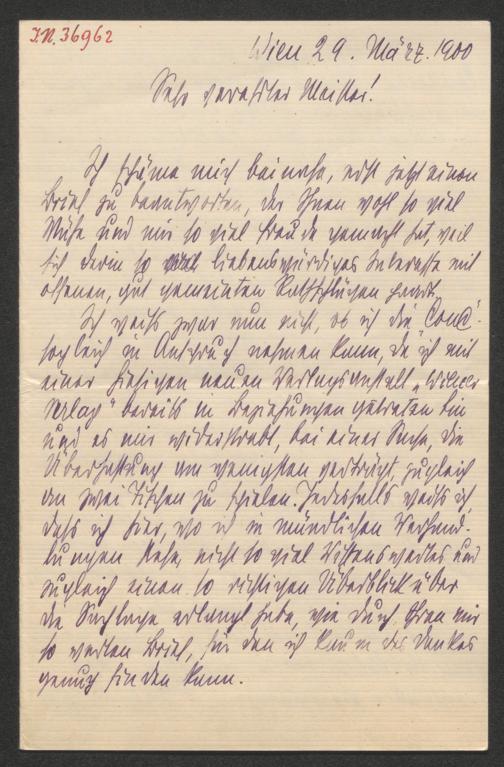 I.N. 36962
Wien 29. März. 1900
Sehr verehrter Meister!
Ich schäme mich beinahe, erst jetzt einen
Brief zu beantworten, der Ihnen wohl so viel
Mühe und mir so viel Freude gemacht hat, weil
sich darin so viel liebenswürdiges Interesse mit
offenen, gut gemeinten Rathschlägen paart.
Ich weiß zwar nun nicht, ob ich die „Conc."
sogleich in Anspruch nehmen kann, da ich mit
einer hiesigen neuen Verlagsanstalt „Wiener
Verlag" bereits in Beziehungen getreten bin
und es mir widerstrebt, bei einer Sache, die
Überhastung am wenigsten verträgt, zugleich
an zwei Tischen zu spielen. Jedesfalls weiß ich,
daß ich hier, wo ich in mündlichen Verhand-
lungen stehe, nicht so viel Wissenswertes und
zugleich einen so richtigen Überblick über
die Sachlage erlangt habe, wie durch Ihren mir
so werten Brief, für den ich kaum des Dankes
genug finden kann.